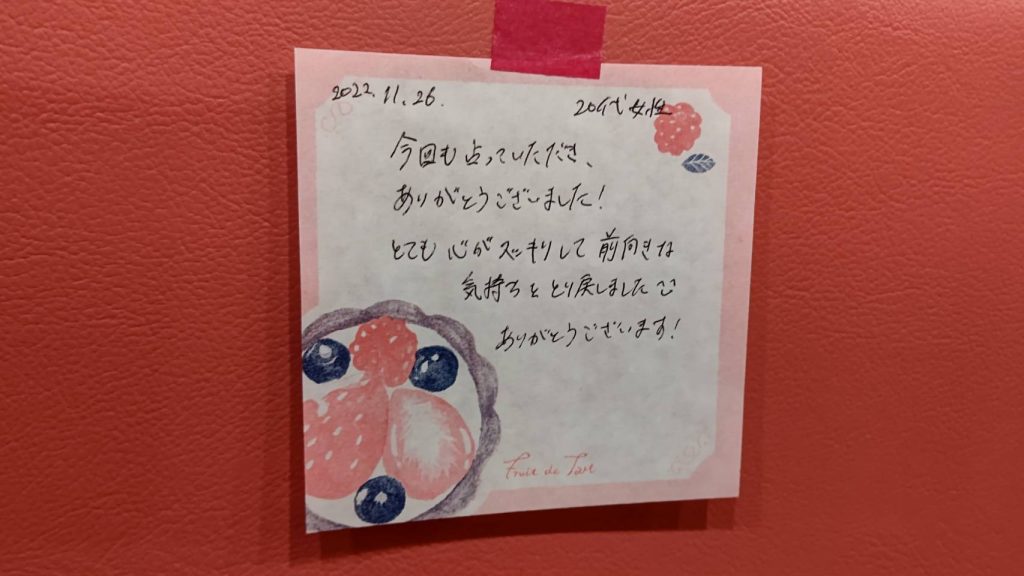 2022.11.26.
20代女性
今回も占っていただき、
ありがとうございました!
とても心がスッキリして前向きな
気持ちをとり戻しました
ありがとうございます!
Fruit de Tart